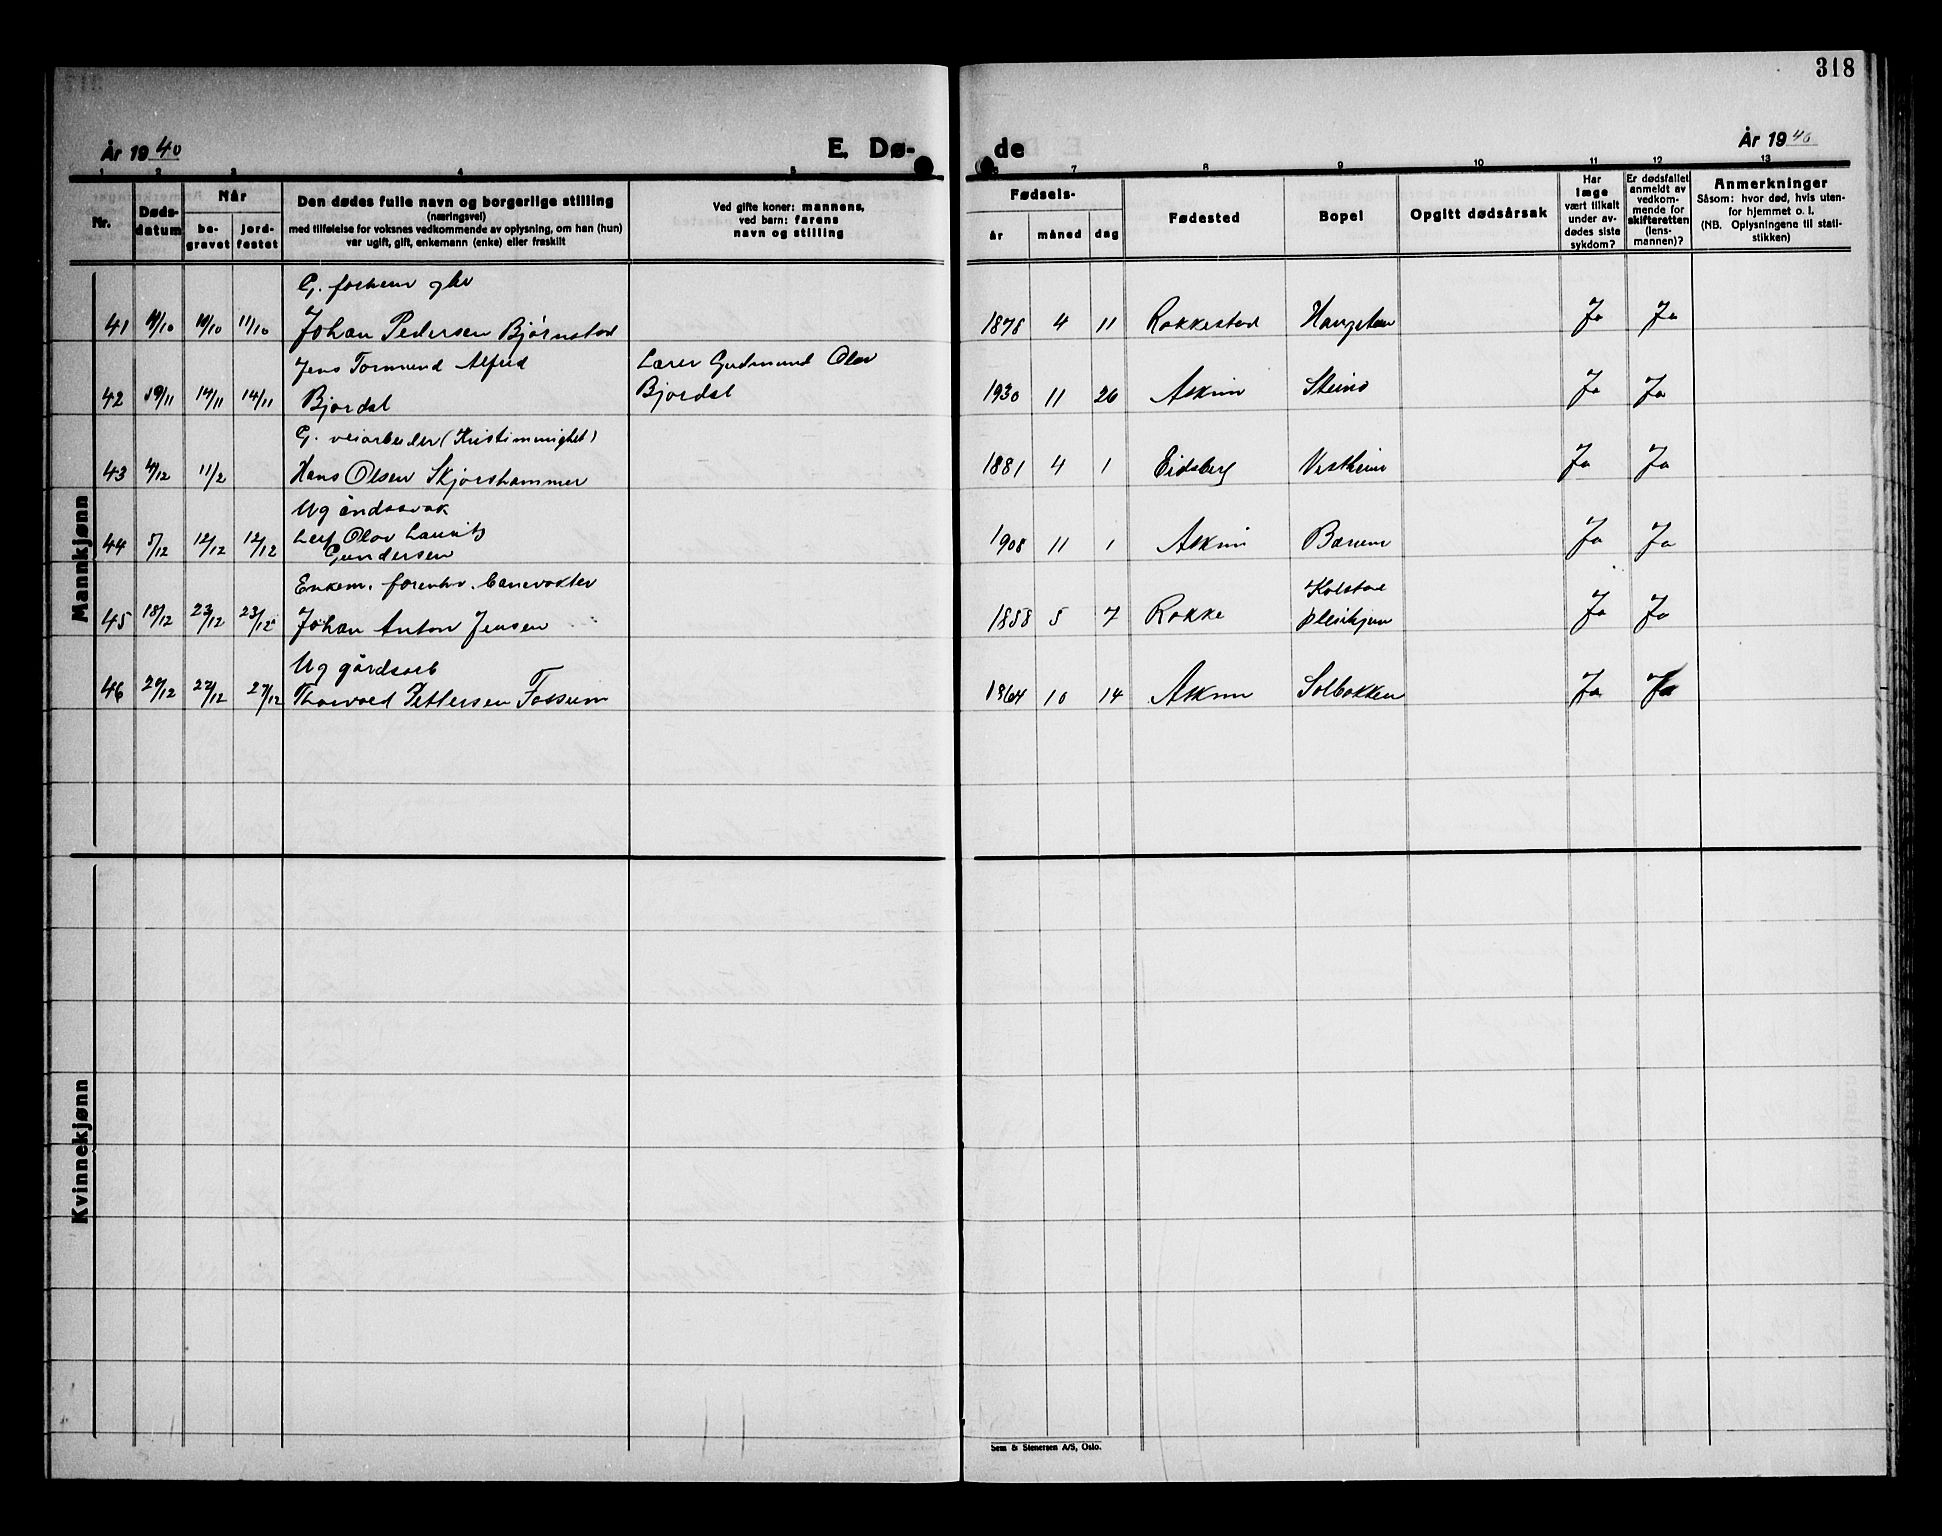 318
År 1940
E. Dø-
de
År 1940
1 2 2 3 4 5
6 7 8 9 10 11 12 13
Nr.
Døds-
datum
Når
be-
gravet
jord-
festet
Den dødes fulle navn og borgerlige stilling
(næringsvei)
med tilføielse for voksnes vedkommende av oplysning, om han (hun)
var ugift, gift, enkemann (enke) eller fraskilt
Ved gifte koner: mannens,
ved barn: farens
navn og stilling
Fødsels-
år måned dag
Fødested
Bopel
Opgitt dødsårsak
Har
læge
vært tilkalt
under av-
dødes siste
sykdom?
Er dødsfallet
anmeldt av
vedkom-
mende for
skifteretten
(lens-
mannen)?
Anmerkninger
Såsom: hvor død, hvis uten-
for hjemmet o. l.
(NB. Oplysningene til stati-
stikken)
Mannkjønn
G. forhenv gbr
41 /10 /10 11/10 Johan Pedersen Bjørnstad 1878 4 11 Rakkestad Haugsten Ja Ja
Jens Tormund Alfred Lærer Gudmund Olav
42 /11 14/11 14/11 Bjordal Bjordal 1930 11 26 Askim Steinö Ja Ja
G. veiarbeider (Kristimmighet)
43 4/12 11/2 Hans Olsen Skjørshammer 1881 4 1 Eidsberg Vestheim Ja Ja
Ug åndssvak
44 5/12 12/12 12/12 Leif Olav Lauritz 1908 11 1 Askim Bærum Ja Ja
Gundersen
Enkem. forenhv. banevokter Kolstad
45 18/12 23/12 23/12 Johan Anton Jensen 1858 5 7 Rokke pleiehjem Ja Ja
Ug gårdsarb
46 20/12 27/12 27/12 Thorvald Pettersen Fossum 1864 10 14 Askim Solbakken Ja Ja
Kvinnekjønn
Sem & Stenersen A/S, Oslo.